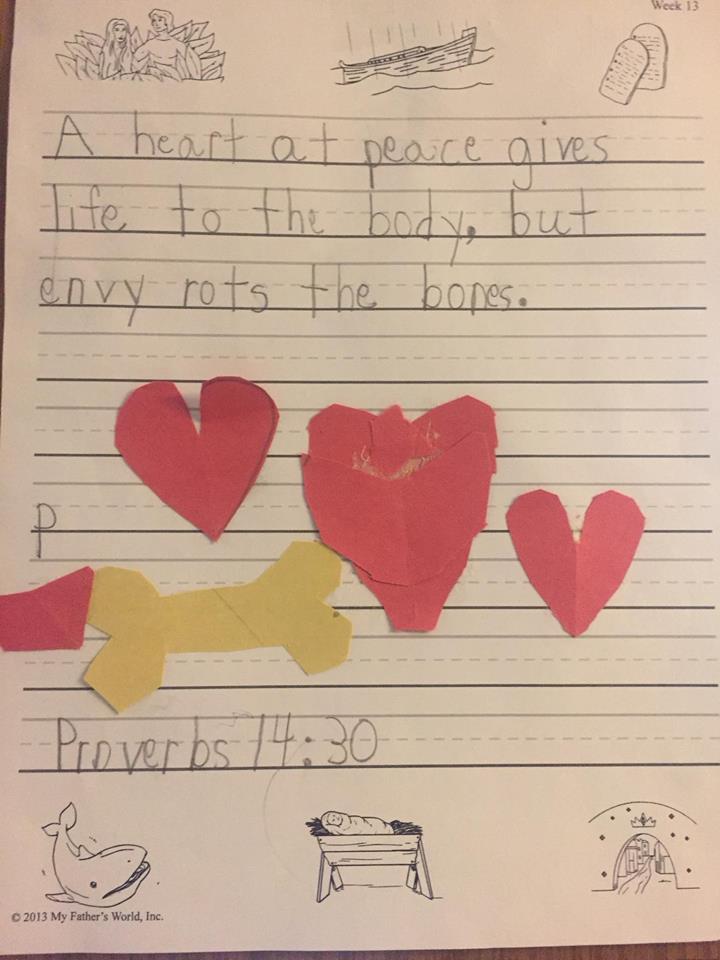 Week 13
A heart at peace gives
life to the body, but
envy rots the bones.
P
Proverbs 14:30
© 2013 My Father's World, Inc.